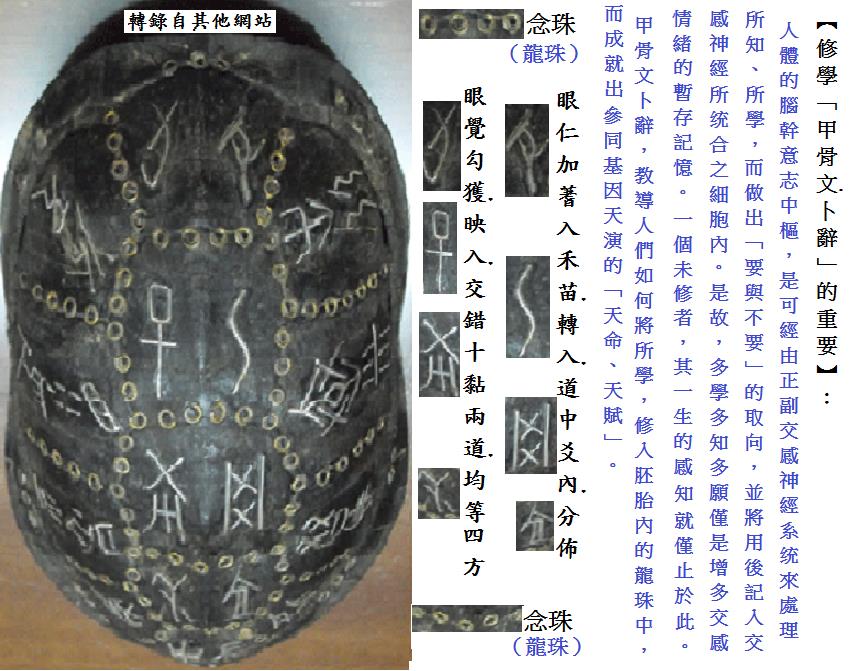 【修學「甲骨文卜辭」的重要】:
人體的腦幹意志中樞,是可經由正副交感神經系統來處理
所知、所學,而做出「要與不要」的取向,並將用後記入交
感神經所統合之細胞內。是故,多學多知多願僅是增多交感
情緒的暫存記憶。一個未修者,其一生的感知就僅止於此。
甲骨文卜辭,教導人們如何將所學,修入胚胎內的龍珠中,
而成就出參同基因天演的「天命、天賦」。
念珠
(龍珠)
眼仁加蓍入禾苗.轉入道中爻內.分佈
眼覺勾獲.映入.交錯十黏兩道.均等四方
念珠
(龍珠)
轉錄自其他網站